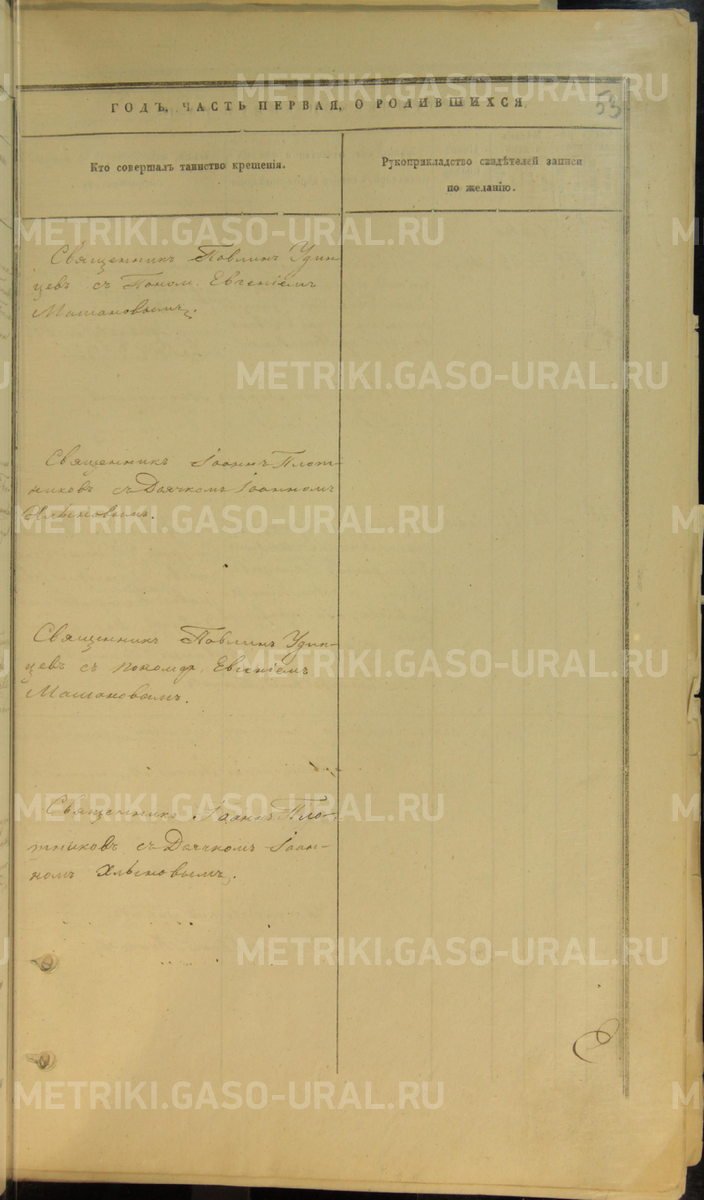 ГОДЪ, ЧАСТЬ ПЕРВАЯ, О РОДИВШИХСЯ.
53
Кто совершалъ таинство крещенія.
Рукоприкладство свидѣтелей записи
по желанію.
Священникъ Павлинъ Удин-
цевъ съ Поном. Евгеніемъ
Машановымъ.
Священникъ Іоаннъ Плот-
никовъ съ Дьячкомъ Іоанномъ
Хлыновымъ.
Священникъ Павлинъ Удин-
цевъ съ поном. Евгеніемъ
Машановымъ.
Священникъ Іоаннъ Пло-
тниковъ съ Дьячкомъ Іоан-
номъ Хлыновымъ.
METRIKI.GASO-URAL.RU
METRIKI.GASO-URAL.RU
METRIKI.GASO-URAL.RU
METRIKI.GASO-URAL.RU
METRIKI.GASO-URAL.RU
METRIKI.GASO-URAL.RU
METRIKI.GASO-URAL.RU
METRIKI.GASO-URAL.RU